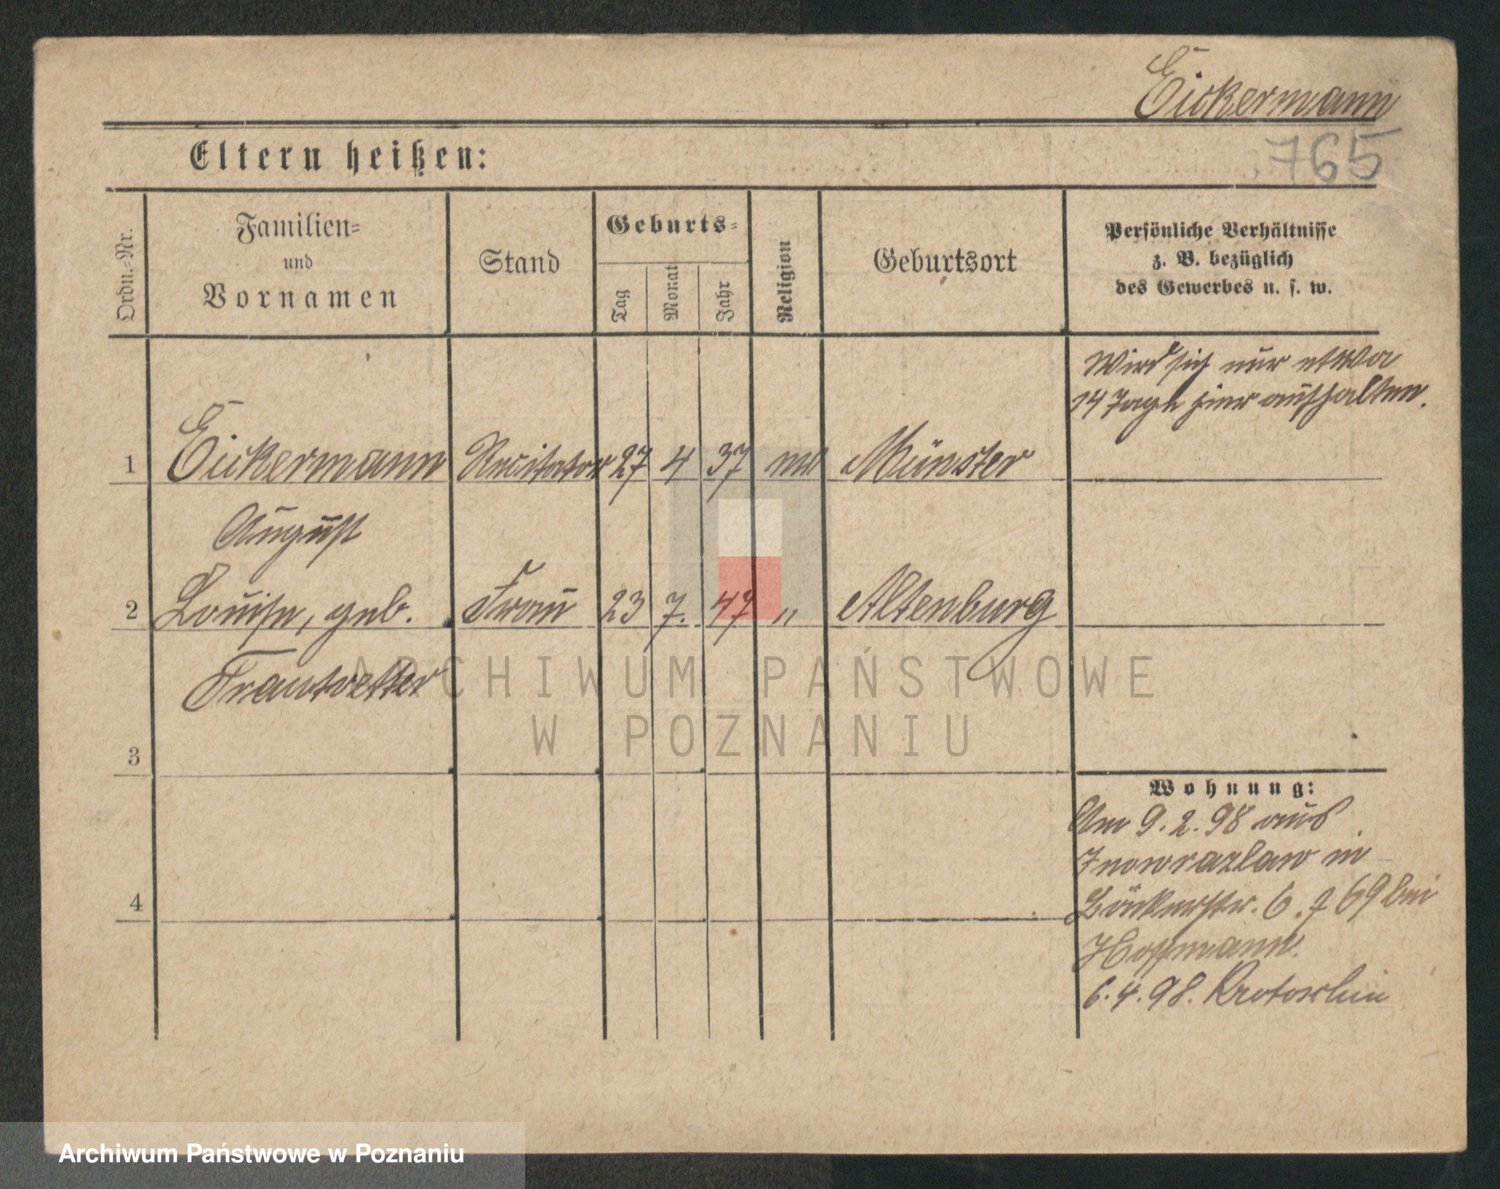 Eickermann
765
Eltern heißen:
Ordn.-Nr.
Familien-
und
Vornamen
Stand
Geburts-
Tag
Monat
Jahr
Religion
Geburtsort
Persönliche Verhältnisse
z. B. bezüglich
des Gewerbes u. s. w.
Wird sich nur etwa
14 Tage hier aufhalten.
1 Eickermann Recitator 27 4 37 Münster
August
2 Louise, geb. Frau 23 7. 47 " Altenburg
Trautvetter
3
4
Wohnung:
Am 9.2.98 aus
Inowrazlaw in
Bäckerstr. 6. 69 bei
Hoffmann.
6.4.98. Krotoschin
ARCHIWUM PAŃSTWOWE
W POZNANIU
Archiwum Państwowe w Poznaniu